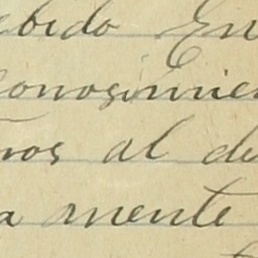 ebido En
conosimien
ños al de
a mente